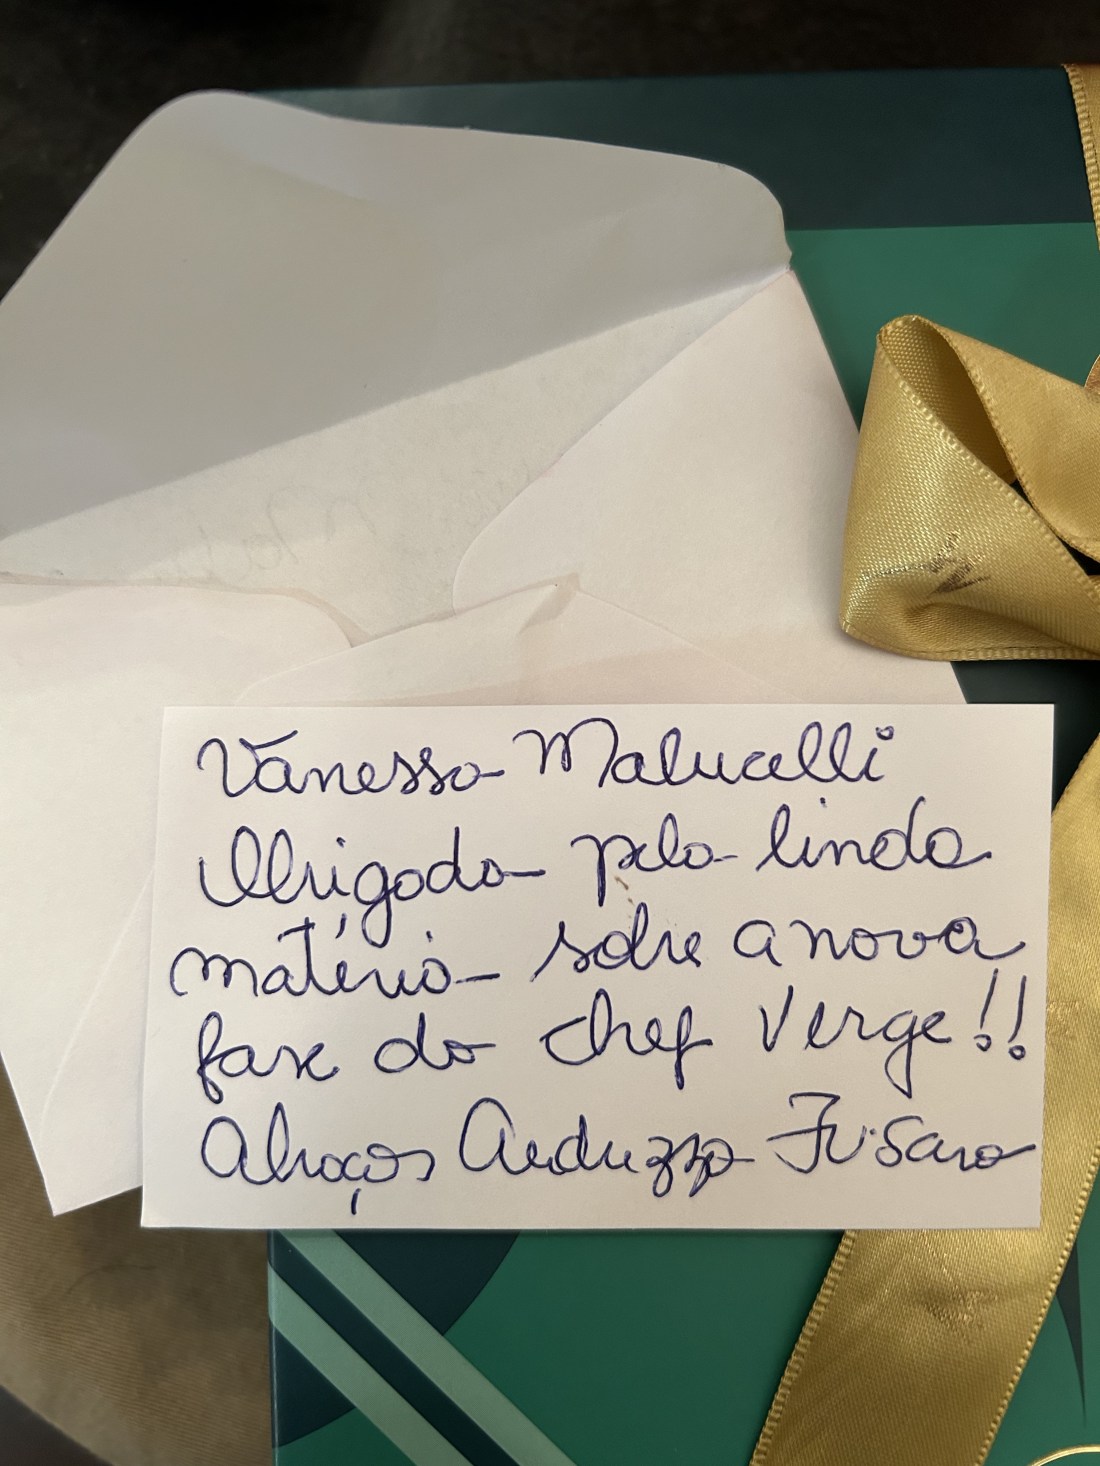 Vanessa Malucelli
Obrigada pela linda
matéria sobre a nova
fase do chef Verge!!
Abraços Fusaro